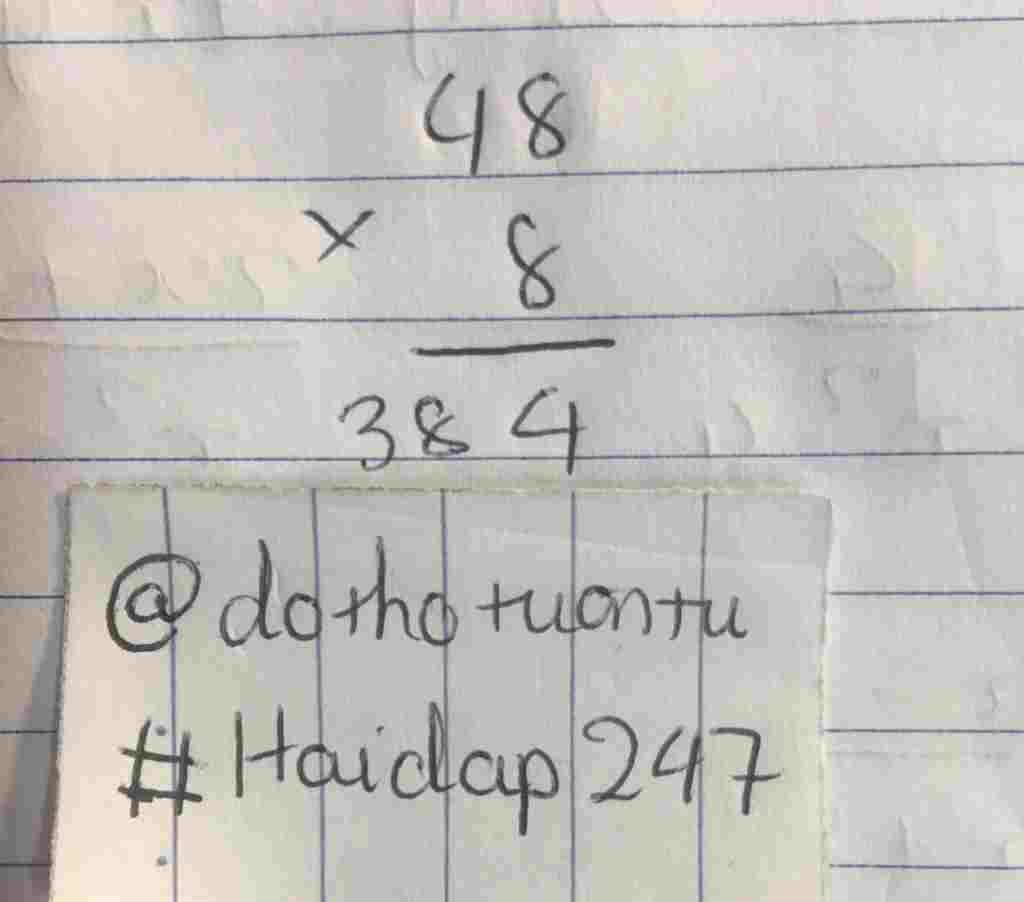 48
× 8
384
@dothotuontu
#Haidap247